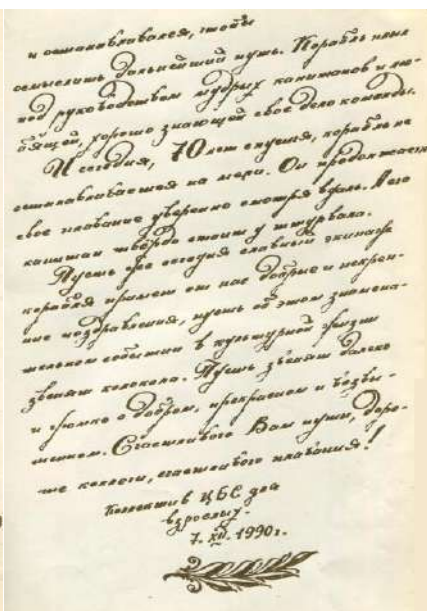 и останавливался, чтобы
осмыслить дальнейший путь. Корабль плыл
под руководством мудрых капитанов и лю-
бящей, хорошо знающей свое дело команды.
И сегодня, 70 лет спустя, корабль не
останавливается на мели. Он продолжает
свое плавание уверенно смотря вдаль. А его
капитан твёрдо стоит у штурвала.
Пусть же сегодня славный экипаж
корабля примет от нас добрые и искрен-
ние поздравления, пусть об этом знамена-
тельном событии в культурной жизни
звенят колокола. Пусть звенят далеко
и громко о добром, прекрасном и возвы-
шенном. Счастливого Вам пути, доро-
гие коллеги, счастливого плавания!
Коллектив ЦБС для
взрослых.
7. XII. 1990 г.